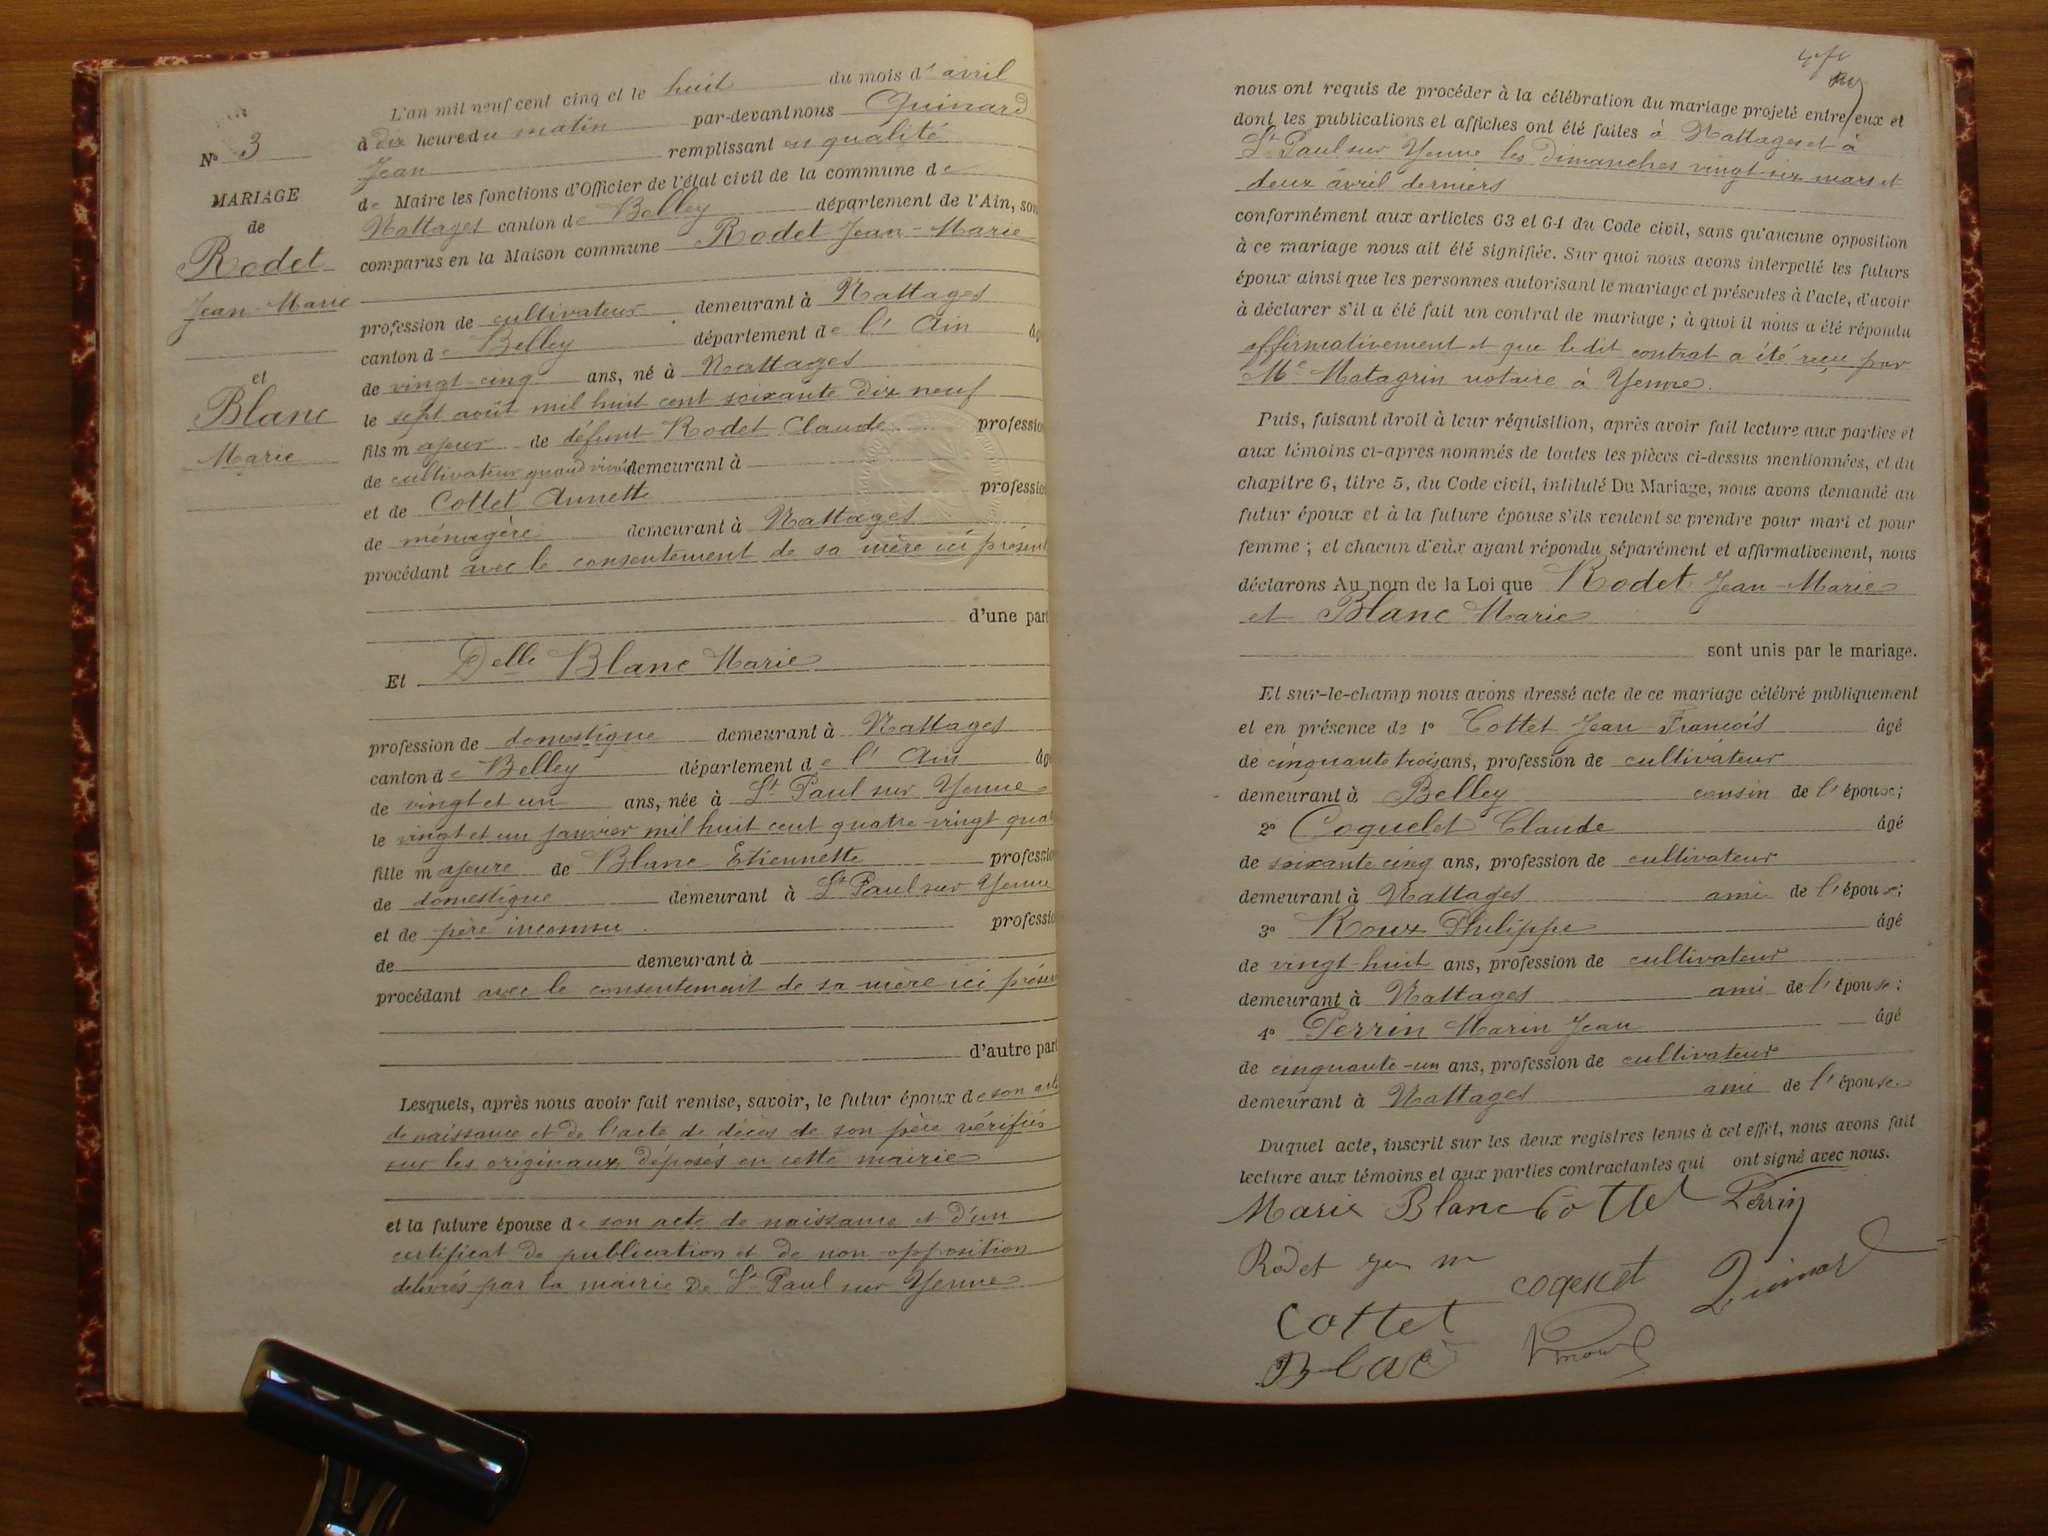 N° 3
MARIAGE
de
Rodet
Jean-Marie
et
Blanc
Marie
L'an mil neuf cent cinq et le huit du mois d'avril
à dix heure du matin par-devant nous Quinard
Jean remplissant en qualité
de Maire les fonctions d'Officier de l'état civil de la commune de
Nattages canton de Belley département de l'Ain, son
comparus en la Maison commune Rodet Jean-Marie
profession de cultivateur demeurant à Nattages
canton de Belley département de l'Ain âg
de vingt-cinq ans, né à Nattages
le sept août mil huit cent soixante dix neuf
fils majeur de défunt Rodet Claude profession
de cultivateur quand vivait demeurant à
et de Cottet Annette profession
de ménagère demeurant à Nattages
procédant avec le consentement de sa mère ici présent
d'une part
Et Delle Blanc Marie
profession de domestique demeurant à Nattages
canton de Belley département de l'Ain âgé
de vingt et un ans, née à St Paul sur Yenne
le vingt et un janvier mil huit cent quatre-vingt quat
fille majeure de Blanc Etiennette professio
de domestique demeurant à St Paul sur Yenne
et de père inconnu professio
de demeurant à
procédant avec le consentement de sa mère ici présen
d'autre part
Lesquels, après nous avoir fait remise, savoir, le futur époux de son acte
de naissance et de l'acte de décès de son père vérifiés
sur les originaux déposés en cette mairie
et la future épouse de son acte de naissance et d'un
certificat de publication et de non-opposition
délivrés par la mairie de St Paul sur Yenne
nous ont requis de procéder à la célébration du mariage projeté entre eux et
dont les publications et affiches ont été faites à Nattages et à
St Paul sur Yenne les dimanches vingt-six mars et
deux avril derniers
conformément aux articles 63 et 64 du Code civil, sans qu'aucune opposition
à ce mariage nous ait été signifiée. Sur quoi nous avons interpellé les futurs
époux ainsi que les personnes autorisant le mariage et présentes à l'acte, d'avoir
à déclarer s'il a été fait un contrat de mariage ; à quoi il nous a été répondu
affirmativement et que ledit contrat a été reçu par
Me Matagrin notaire à Yenne.
Puis, faisant droit à leur réquisition, après avoir fait lecture aux parties et
aux témoins ci-après nommés de toutes les pièces ci-dessus mentionnées, et du
chapitre 6, titre 5, du Code civil, intitulé Du Mariage, nous avons demandé au
futur époux et à la future épouse s'ils veulent se prendre pour mari et pour
femme ; et chacun d'eux ayant répondu séparément et affirmativement, nous
déclarons Au nom de la Loi que Rodet Jean-Marie
et Blanc Marie
sont unis par le mariage.
Et sur-le-champ nous avons dressé acte de ce mariage célébré publiquement
et en présence de 1° Cottet Jean François âgé
de cinquante trois ans, profession de cultivateur
demeurant à Belley cousin de l'époux;
2° Coquelet Claude âgé
de soixante cinq ans, profession de cultivateur
demeurant à Nattages ami de l'époux;
3° Roux Philippe âgé
de vingt-huit ans, profession de cultivateur
demeurant à Nattages ami de l'épouse;
4° Perrin Marin Jean âgé
de cinquante-un ans, profession de cultivateur
demeurant à Nattages ami de l'épouse
Duquel acte, inscrit sur les deux registres tenus à cet effet, nous avons fait
lecture aux témoins et aux parties contractantes qui ont signé avec nous.
Marie Blanc Cottet Perrin
Rodet
Cottet